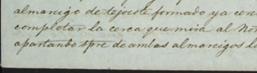 almanigo de tejocote formado ya con
completar la cerca que mira al Nor
apartando spre de ambas almanigos la